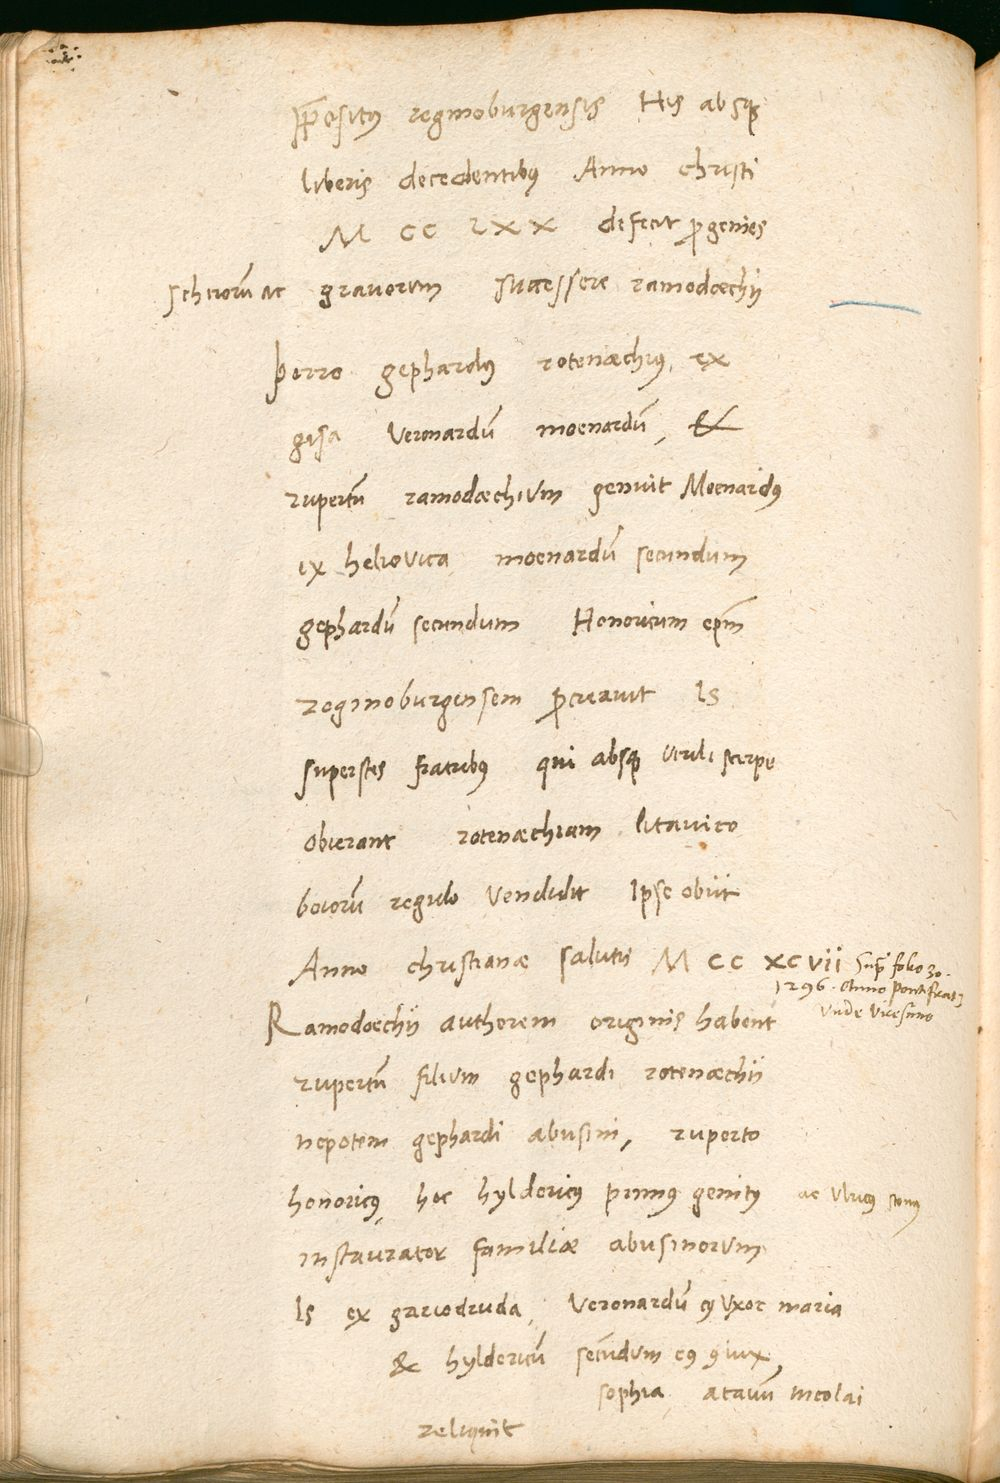 p̄positꝰ reginoburgensis His absqꝫ
liberis decedentibꝰ Anno christi
M CC LXX defecit ꝓgenies
schirorū ac grauorum successere ramodoechij
Porro gephardꝰ rotenæchiꝰ, ex
gisa Veronardū moenardū, &
rupertū ramodæchium genuit Moenardꝰ
ex heliovica moenardū secundum
gephardū secundum Henoricum ep̄m
reginoburgensem ꝓcreauit Is
superstes fratribꝰ qui absqꝫ virili stirpe
obierant rotenæchiam litavico
boiorū regulo Vendidit Ipse obiit
Anno christianæ salutis M CC XCVII
Sup̄ folio 30.
1296. Anno pontificatꝰ
Vnde Vicesimo
Ramodoechij authorem originis habent
rupertū filium gephardi rotenæchij
nepotem gephardi abusini, ruperto
henoricꝰ, hoc hyldericꝰ primꝰ genitꝰ ac Vlricꝰ
instaurator familiæ abusinorum
Is ex Veronardū cꝰ Vxor maria
& hyldericū secūdum cꝰ ꝯiux,
sophia atauū nicolai
reliquit